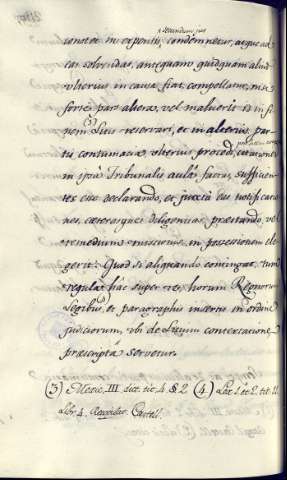 secundum jus
condemnetur, atque ad
eas solvendas, antequam quidquam aliud
ulterius in causa fiat compellatur, nisi
forte pars altera, vel maluerit eas in fi-
nem (3) Litis reservari, et in alterius par-
tis contumacia ulterius procedi, citationes
in ipsa Tribunalis aula factas, sufficien-
tes esse declarando, et juxta eas notificatio-
nes, caeterasque diligentias praestando, vel
remedium missionis in possessionem ele-
gerit. Quod si aliquando contingat, tum
regula hac super re, horum Regnorum
Legibus, (4) et paragraphis insertis in ordine
judiciorum, ubi de Litium contestatione,
praescripta servetur.
(3) Mexic. III. dict. tit. 4 § 2 (4) L. 1. et 2. tit. 11.
Libr. 4. Recopilac. Castell.